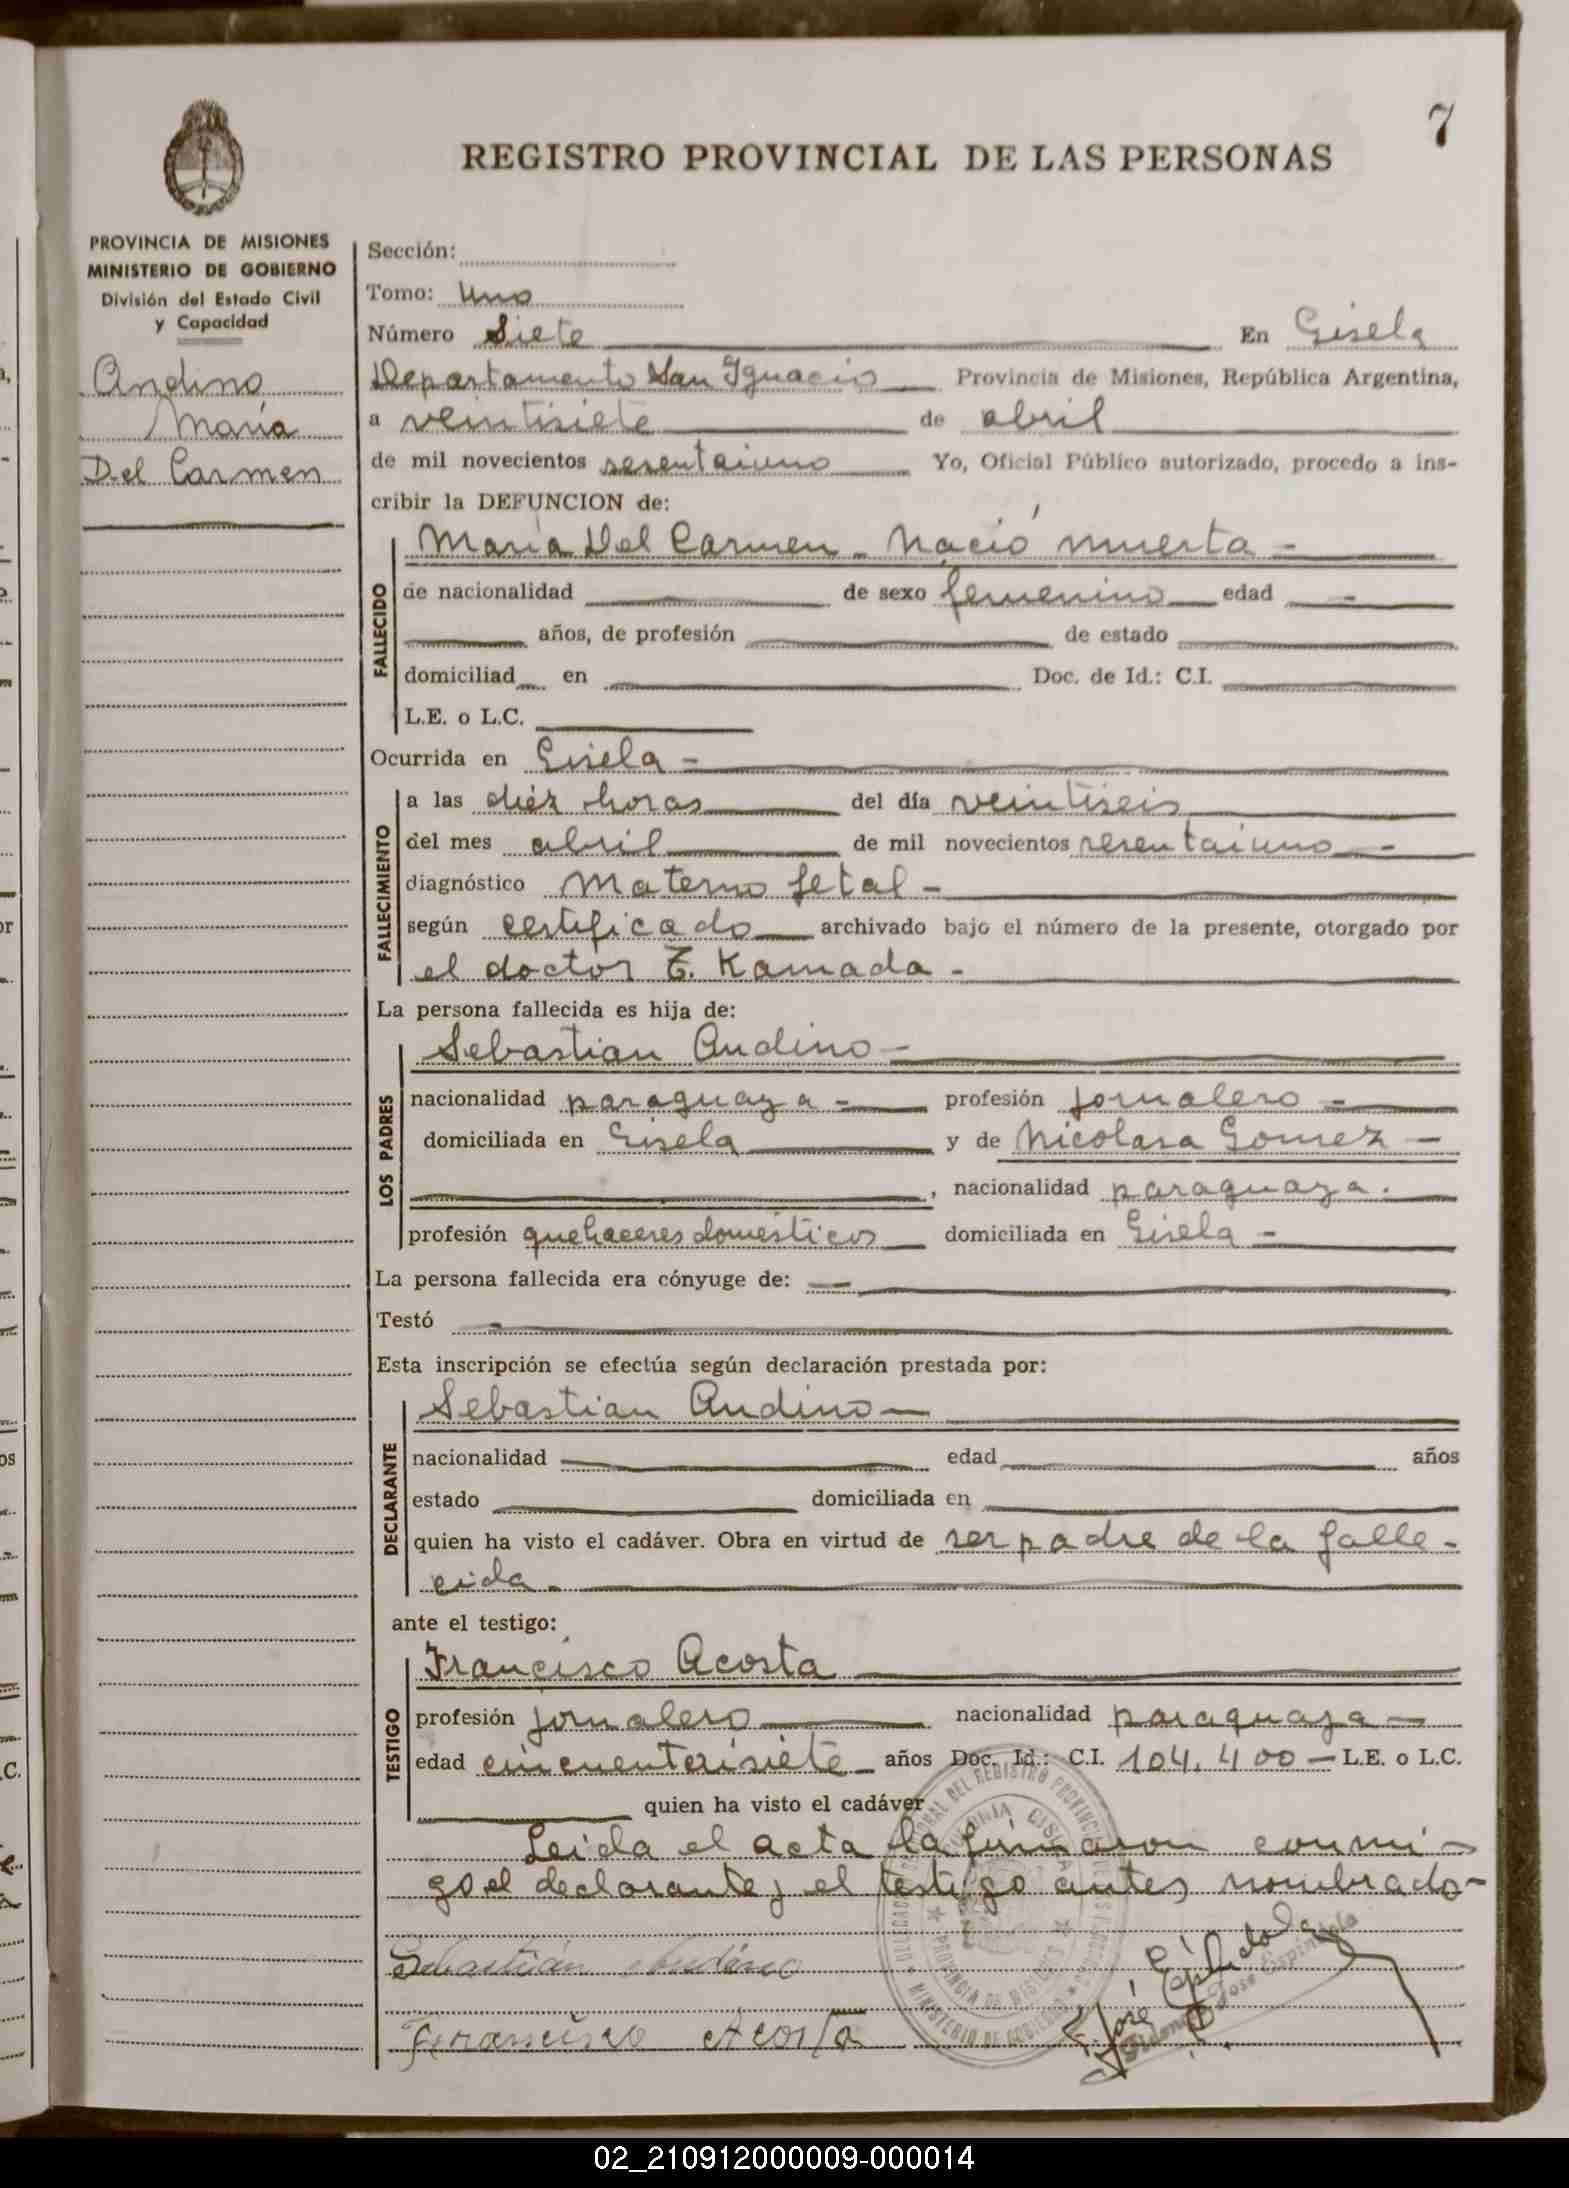 7
REGISTRO PROVINCIAL DE LAS PERSONAS
PROVINCIA DE MISIONES
MINISTERIO DE GOBIERNO
División del Estado Civil
y Capacidad
Andino
María
Del Carmen
Sección:
Tomo: Uno
Número Siete En Gisela
Departamento San Ignacio Provincia de Misiones, República Argentina,
a veintisiete de abril
de mil novecientos sesentaiuno Yo, Oficial Público autorizado, procedo a ins-
cribir la DEFUNCION de:
FALLECIDO
María Del Carmen - Nació muerta -
de nacionalidad de sexo femenino edad -
años, de profesión de estado
domiciliad en Doc. de Id.: C.I.
L.E. o L.C.
Ocurrida en Gisela -
FALLECIMIENTO
a las diéz horas del día veintiseis
del mes abril de mil novecientos sesentaiuno -
diagnóstico Materno fetal -
según certificado archivado bajo el número de la presente, otorgado por
el doctor T. Kamada -
La persona fallecida es hija de:
LOS PADRES
Sebastian Andino -
nacionalidad paraguaya - profesión jornalero -
domiciliada en Gisela y de Nicolasa Gomez -
, nacionalidad paraguaya.
profesión quehaceres domésticos domiciliada en Gisela -
La persona fallecida era cónyuge de: -
Testó -
Esta inscripción se efectúa según declaración prestada por:
DECLARANTE
Sebastian Andino -
nacionalidad edad años
estado domiciliada en
quien ha visto el cadáver. Obra en virtud de ser padre de la falle-
cida.
ante el testigo:
TESTIGO
Francisco Acosta
profesión jornalero nacionalidad paraguaya -
edad cincuentaisiete años Doc. Id.: C.I. 104.400 - L.E. o L.C.
quien ha visto el cadáver
Leida el acta la firmaron conmi-
go el declarante y el testigo antes nombrado-
Sebastián Andino
Francisco Acosta
José Espíndola
José Espíndola
COLONIA GISELA
PROVINCIA DE MISIONES
MINISTERIO DE GOBIERNO
02_210912000009-000014